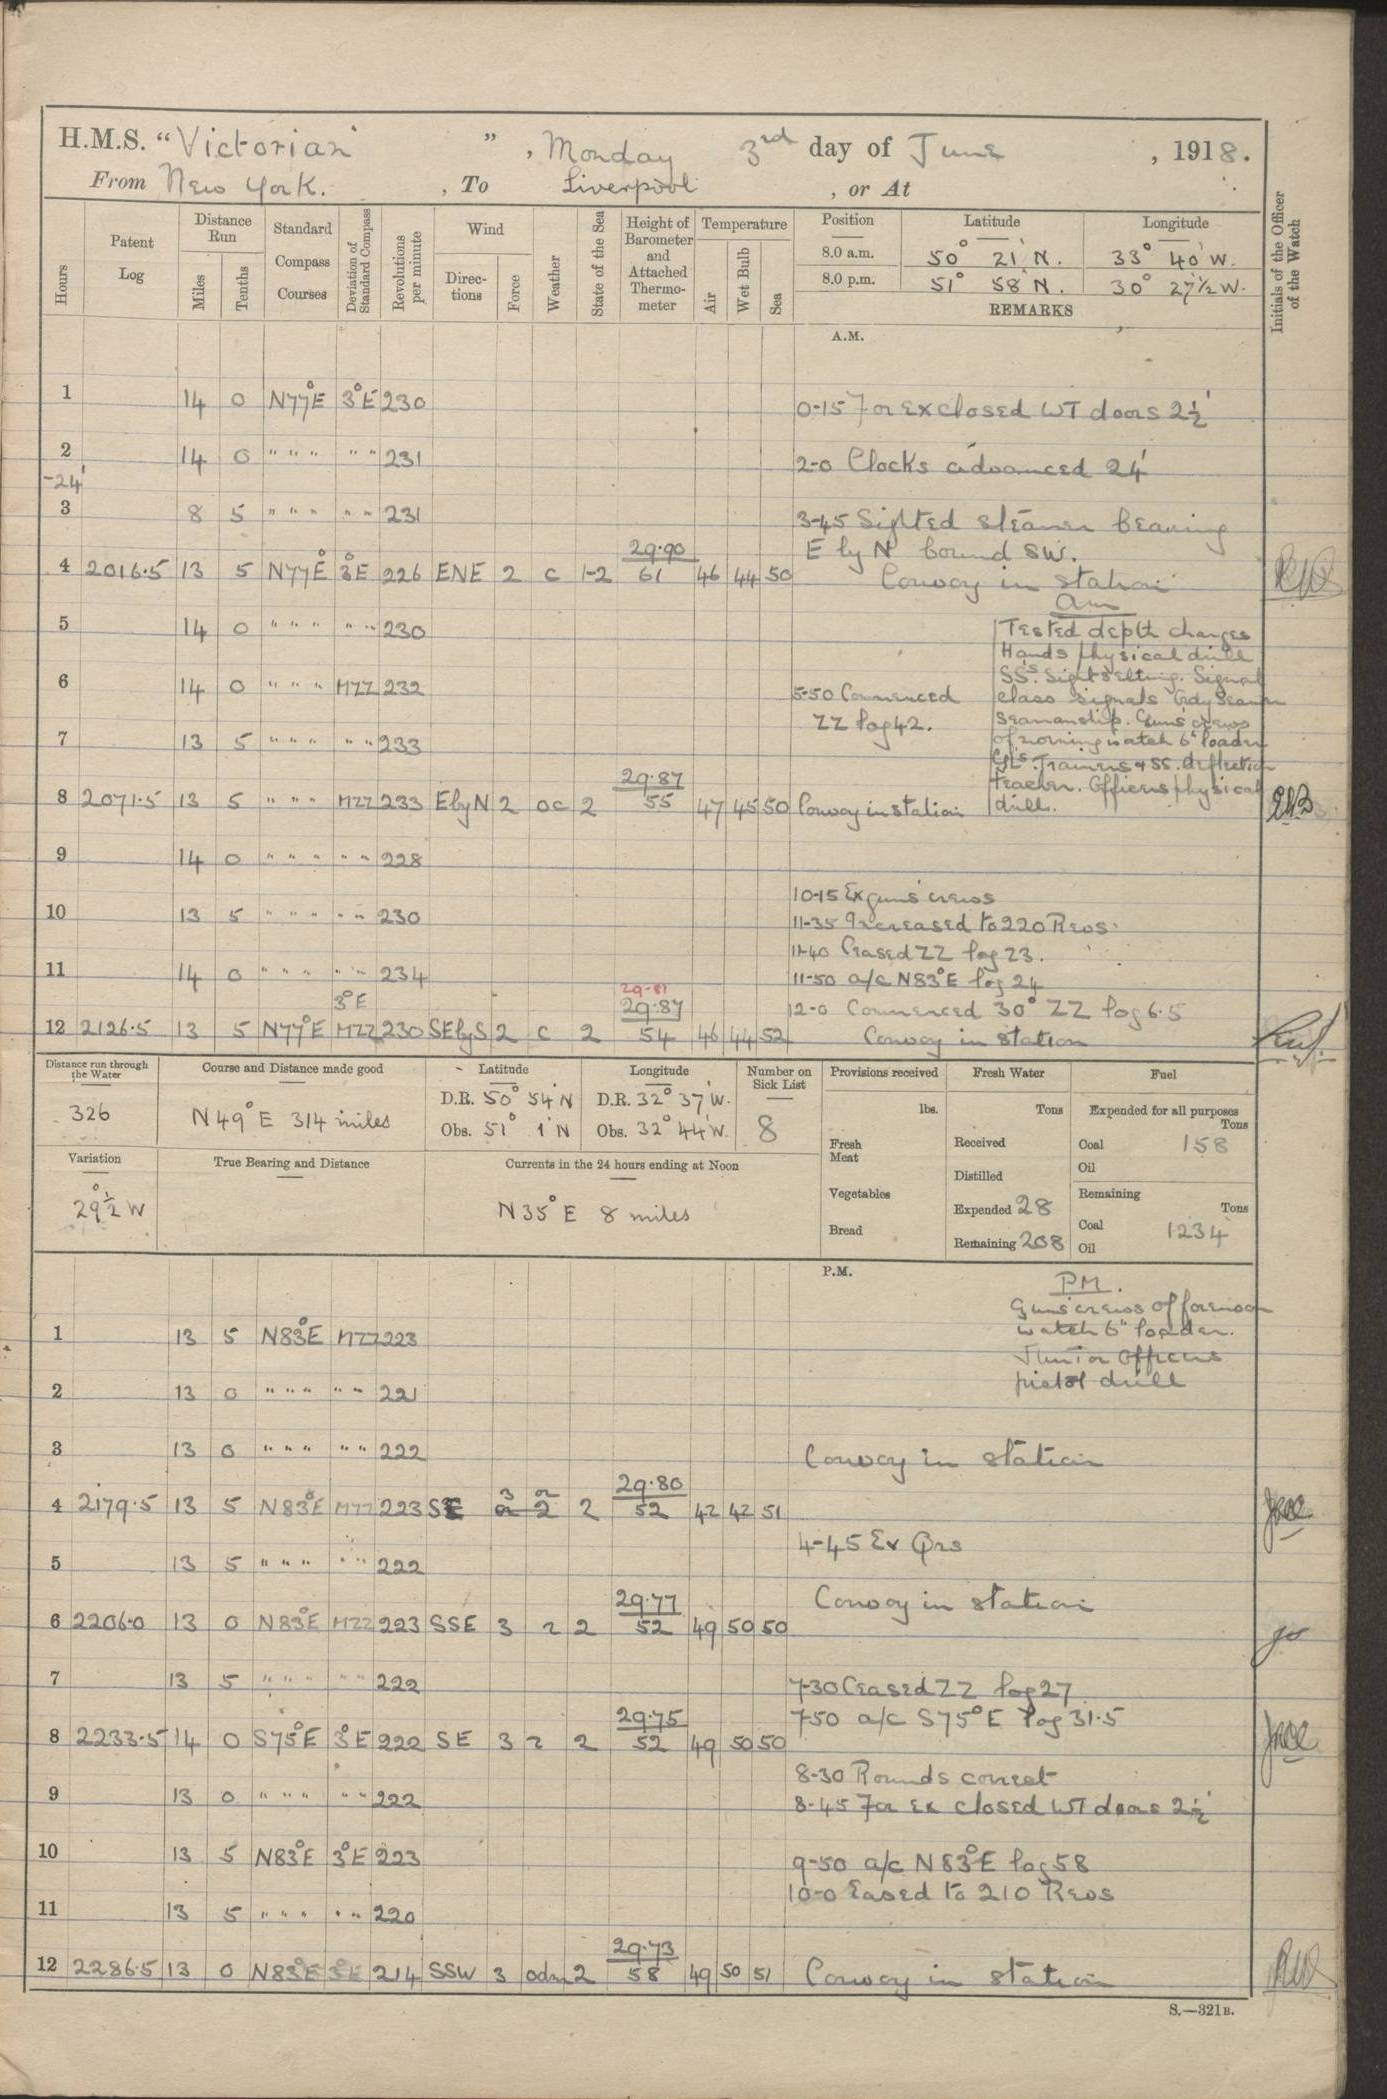 H.M.S. "Victorian", Monday 3rd day of June, 1918.
From New York. , To Liverpool , or At
Hours
Patent Log
Distance Run
Miles
Tenths
Standard Compass Courses
Deviation of Standard Compass
Revolutions per minute
Wind
Directions
Force
Weather
State of the Sea
Height of Barometer and Attached Thermometer
Temperature
Air
Wet Bulb
Sea
Position Latitude Longitude
8.0 a.m. 50° 21' N. 33° 40' W.
8.0 p.m. 51° 58' N. 30° 27½ W.
REMARKS
Initials of the Officer of the Watch
A.M.
1 14 0 N77°E 3°E 230 0-15 For Ex closed WT doors 2½'
2 14 0 " " " " " 231 2-0 Clocks advanced 24'
-24'
3 8 5 " " " " " 231 3-45 Sighted steamer bearing
29.90 E by N bound SW.
4 2016.5 13 5 N77°E 3°E 226 ENE 2 c 1-2 61 46 44 50 Convoy in station
am
5 14 0 " " " " " 230 Tested depth charges
Hands physical drill
6 14 0 " " " MZZ 232 SS's Sightsetting. Signal
5-50 Commenced class signals Bdy Seamen
ZZ log 42. Seamanship. Guns crews
7 13 5 " " " " " 233 of morning watch 6" loader
GL's Trainers & SS. deflection
29.87 teacher. Officers physical
8 2071.5 13 5 " " " MZZ 233 E by N 2 oc 2 55 47 45 50 Convoy in station drill.
9 14 0 " " " " " 228
10-15 Ex guns crews
10 13 5 " " " " " 230 11-35 Increased to 220 Revs.
11-40 Ceased ZZ log 23.
11 14 0 " " " " " 234 11-50 a/c N83°E log 24
29.81
3°E 29.87 12-0 Commenced 30° ZZ log 6.5
12 2126.5 13 5 N77°E MZZ 230 SE by S 2 c 2 54 46 44 52 Convoy in station
Distance run through the Water
326
Course and Distance made good
N49°E 314 miles
Latitude
D.R. 50° 54' N
Obs. 51° 1' N
Longitude
D.R. 32° 37' W.
Obs. 32° 44' W.
Number on Sick List
8
Variation
29½° W
True Bearing and Distance
Currents in the 24 hours ending at Noon
N35°E 8 miles
Provisions received
lbs.
Fresh Meat
Vegetables
Bread
Fresh Water
Tons
Received
Distilled
Expended 28
Remaining 208
Fuel
Expended for all purposes
Tons
Coal 158
Oil
Remaining
Tons
Coal 1234
Oil
P.M.
PM.
Guns crews of forenoon
1 13 5 N83°E MZZ 223 watch 6" loader.
Junior Officers
2 13 0 " " " " " 221 pistol drill
3 13 0 " " " " " 222 Convoy in station
29.80
4 2179.5 13 5 N83°E MZZ 223 SE 3 2 2 52 42 42 51
4-45 Ex Qrs
5 13 5 " " " " " 222
29.77 Convoy in station
6 2206.0 13 0 N83°E MZZ 223 SSE 3 r 2 52 49 50 50
7 13 5 " " " " " 222 7-30 Ceased ZZ log 27
29.75 7-50 a/c S75°E log 31.5
8 2233.5 14 0 S75°E 3°E 222 SE 3 r 2 52 49 50 50
8-30 Rounds correct
9 13 0 " " " " " 222 8-45 For Ex closed WT doors 2½'
10 13 5 N83°E 3°E 223 9-50 a/c N83°E log 58
10-0 Eased to 210 Revs
11 13 5 " " " " " 220
29.73
12 2286.5 13 0 N83°E 3°E 214 SSW 3 odm 2 58 49 50 51 Convoy in station
S.—321B.